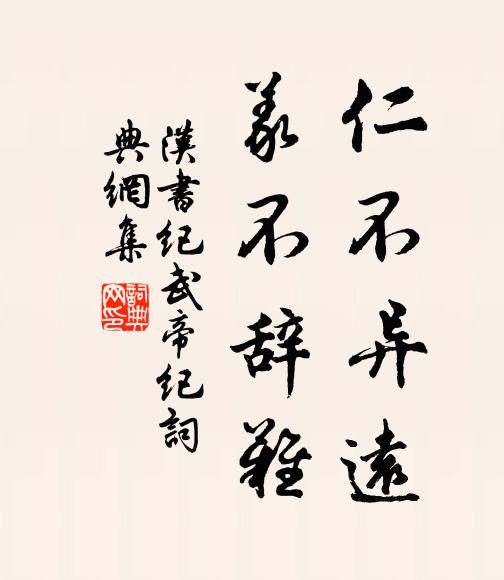 仁不异遠
義不辞難
漢書纪武帝纪詞
典網集
詞典网印